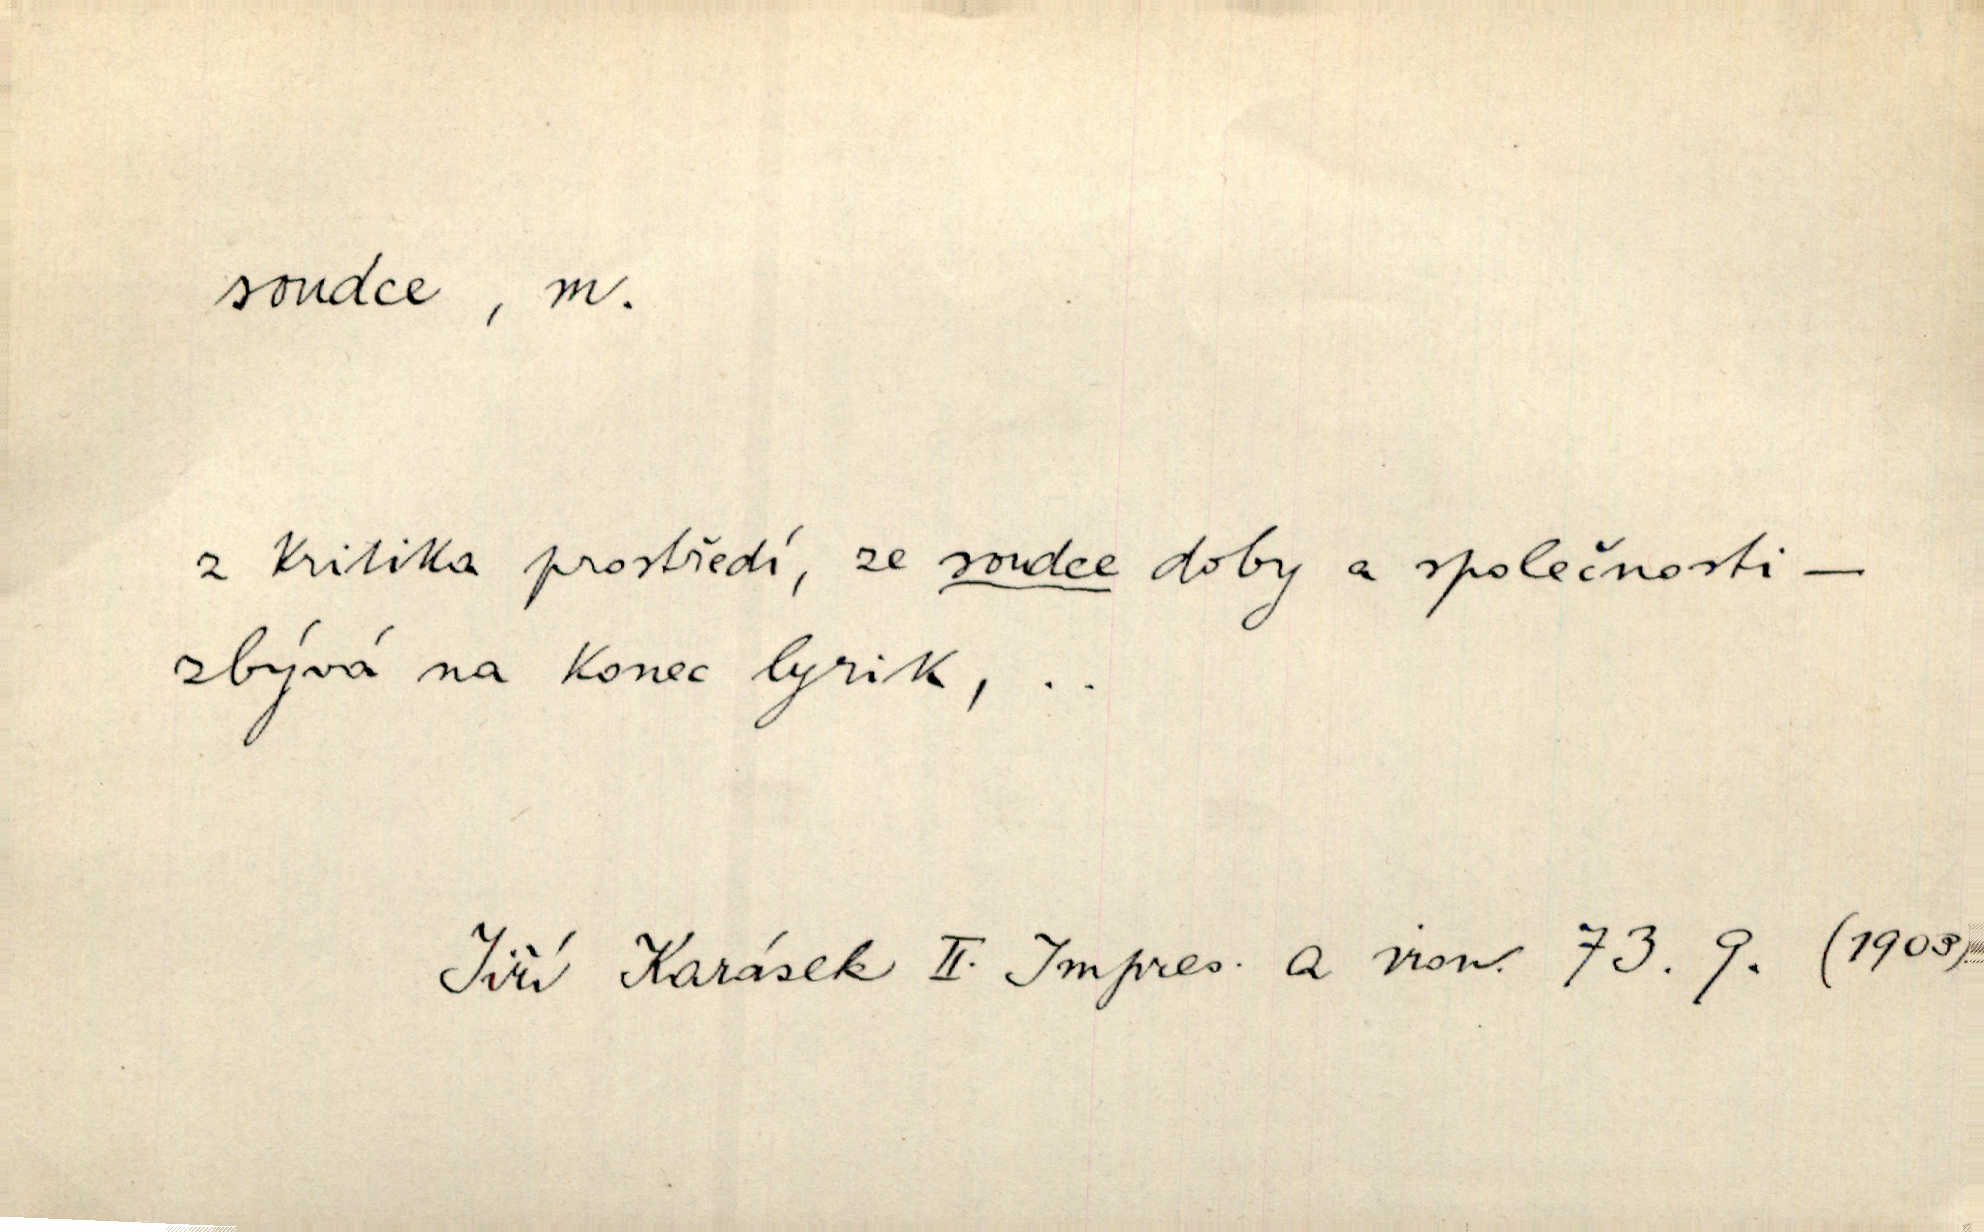 soudce , m.
z kritika prostředí, ze soudce doby a společnosti —
zbývá na konec lyrik, . .
Jiří Karásek II. Impres. a iron. 73. 9. (1903)